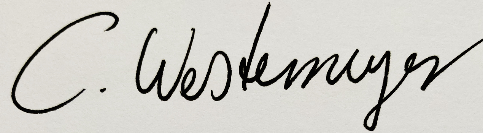 C. Westermeyer